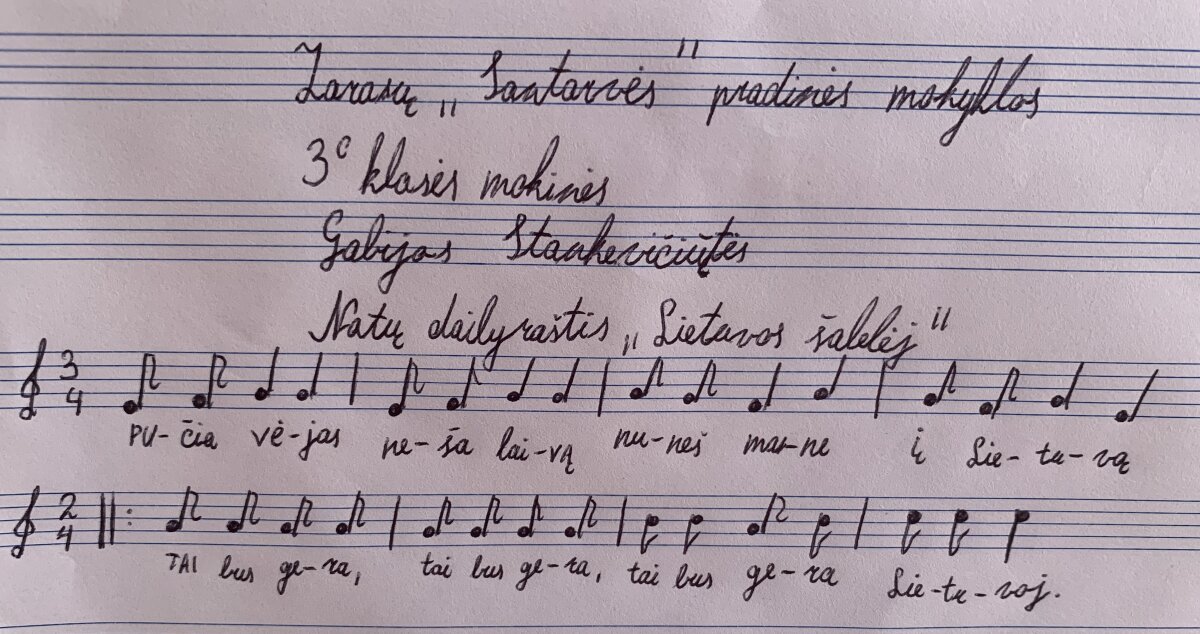 Zarasų „Santarvės" pradinės mokyklos
3c klasės mokinės
Gabijos Stankevičiūtės
Natų dailyraštis „Lietuvos šalelėj"
3
4
PU-čia vė-jas ne-ša lai-vą nu-neš ma-ne į Lie-tu-vą
2
4
TAI bus ge-ra, tai bus ge-ra, tai bus ge-ra Lie-tu-voj.